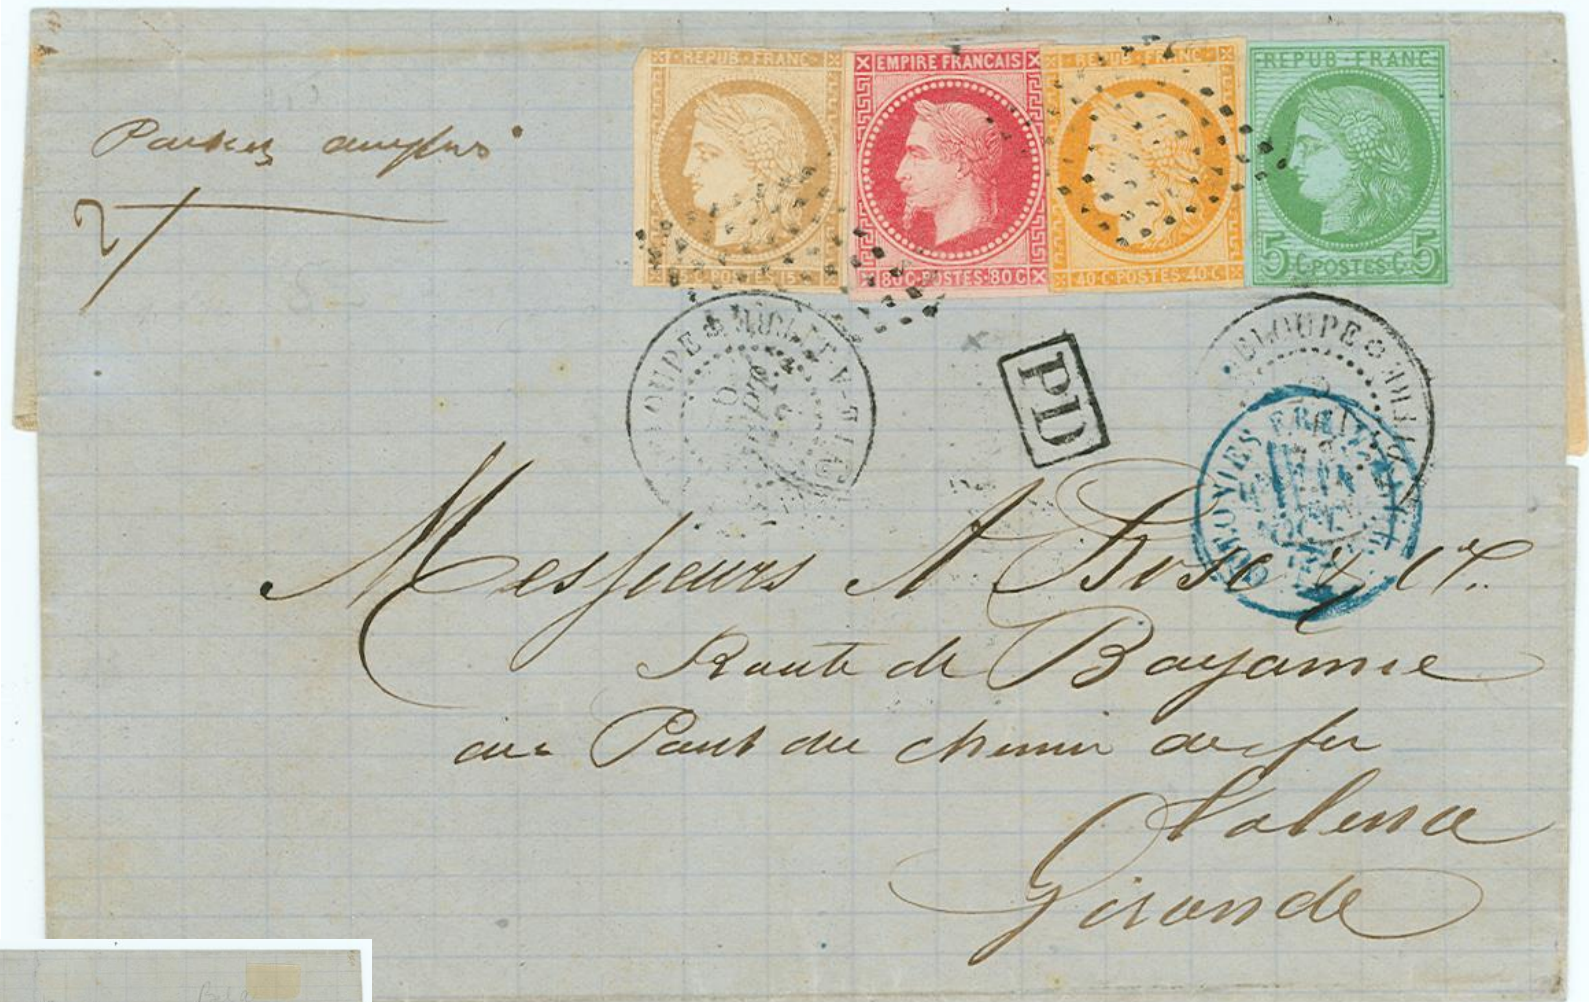 REPUB·FRANC·
15·C·POSTES·15·C
EMPIRE FRANCAIS
80·C·POSTES·80·C
REPUB·FRANC·
40·C·POSTES·40·C·
REPUB·FRANC·
5 C·POSTES·C· 5
2
OUPE
PD
ELOUPE
Messieurs A Bosc & Cie
Route de Bayonne
au Pont du chemin de fer
Talence
Gironde